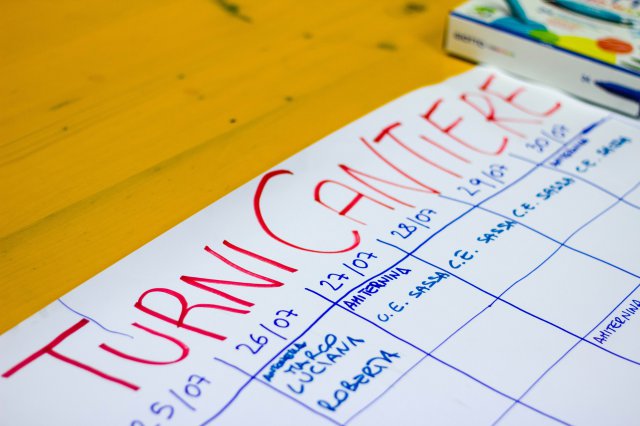 TURNI CANTIERE
25/07 26/07 27/07 28/07 29/07 30/07
AMITERNINA AMITERNINA
C.E. SASSA C.E. SASSA C.E. SASSA C.E. SASSA
LUCIANA
ROBERTA
AMITERNINA